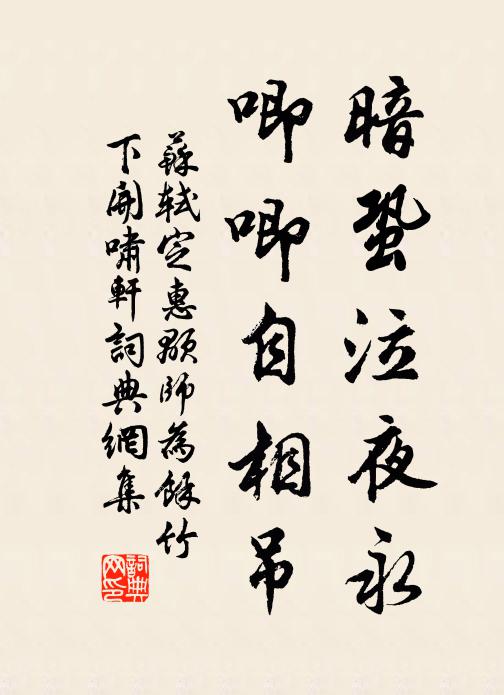 暗蛩泣夜永
唧唧自相吊
蘇軾定惠顒師為餘竹
下開嘯軒詞典網集
詞典网印